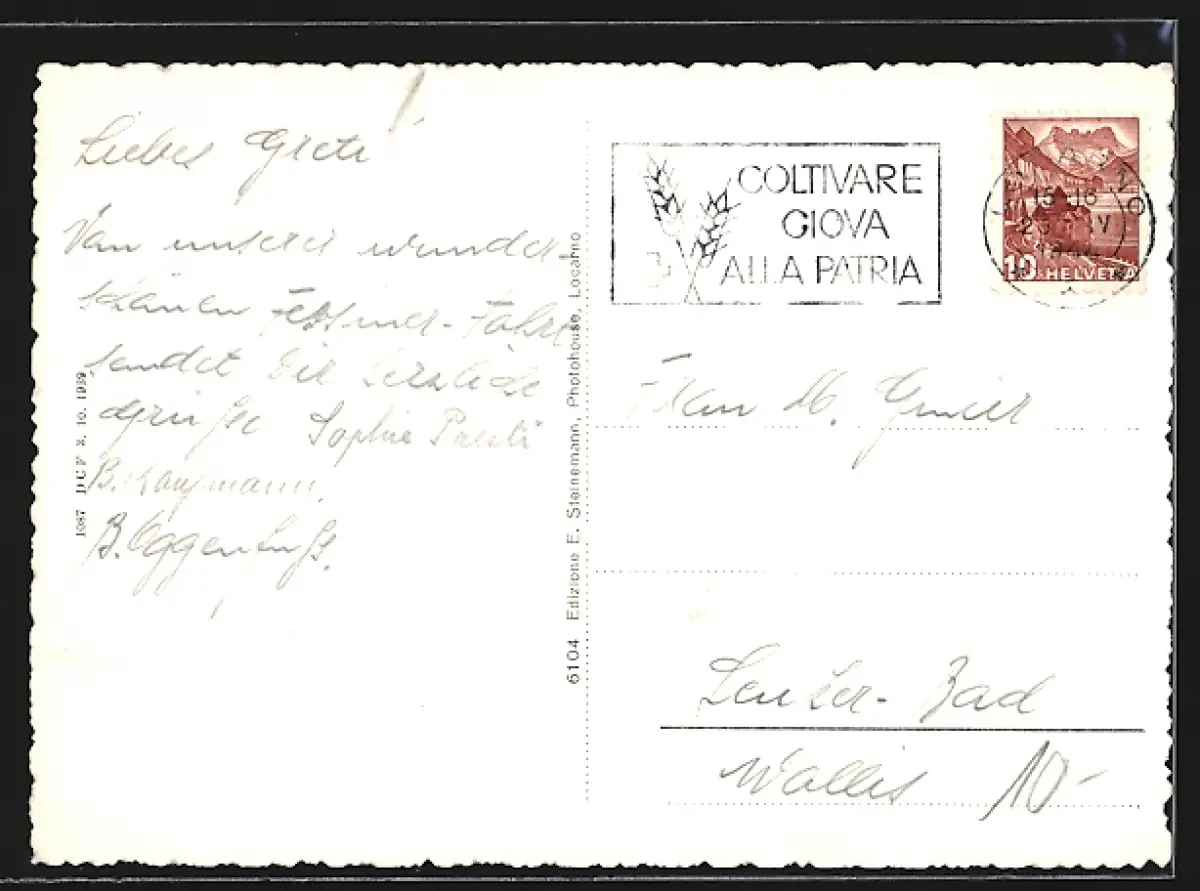 Liebes Greti!
Von unserer wunder-
schönen Tessiner-Fahrt
sendet Dir herzliche
Grüsse Sophie
B. Kaufmann.
B. Oggenfuss.
1087 8. 10. 1939
6104 Edizione E. Steinemann, Photohouse, Locarno
COLTIVARE
GIOVA
ALLA PATRIA
15-16
10 HELVETIA
Frau M.
Leuker-Bad
Wallis 10-